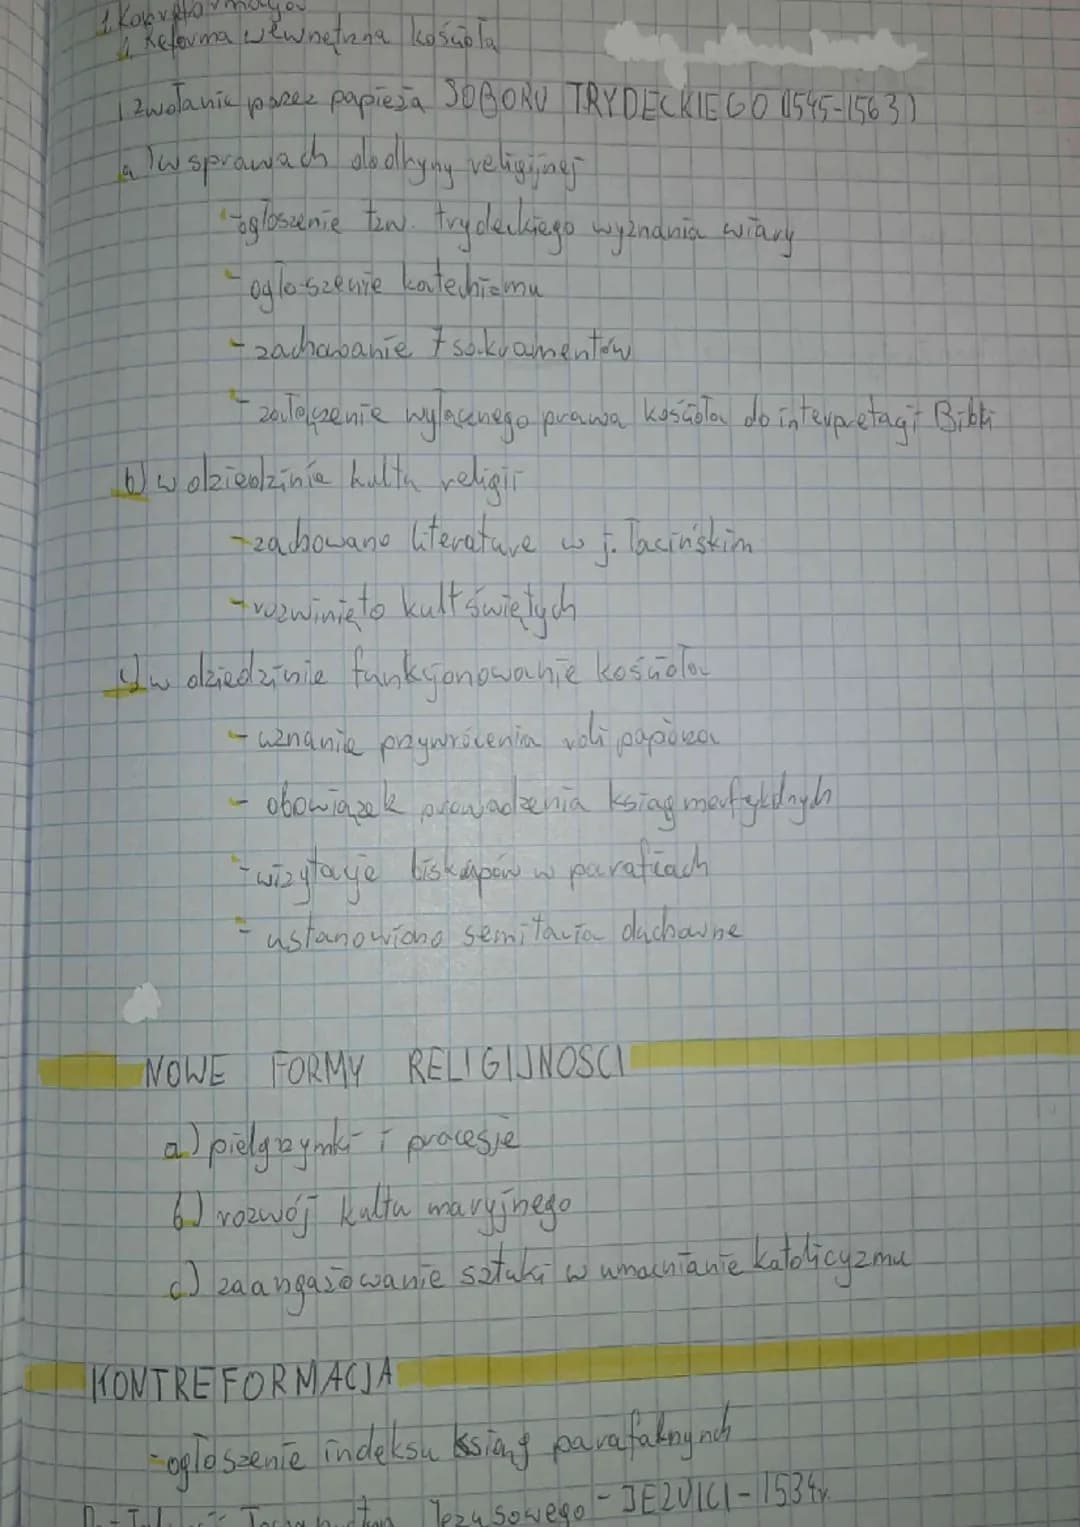 1. Reforma wewnętrzna kościoła
1 zwołanie przez papieża SOBORU TRYDECKIEGO (1545-1563)
a) w sprawach doktryny religijnej
- ogłoszenie tzw. trydeckiego wyznania wiary
- ogłoszenie katechizmu
- zachowanie 7 sakramentów
- zalecenie wyłącznego prawa kościoła do interpretacji Biblii
b) w dziedzinie kultu religii
- zachowano literature w j. łacińskim
- rozwinięto kult świętych
c) w dziedzinie funkcjonowanie kościoła
- uznanie przywrócenia roli papieża
- obowiązek prowadzenia ksiąg metrykalnych
- wizytacje biskupów w parafiach
- ustanowiono semitaria duchowne
NOWE FORMY RELIGIJNOSCI
a) pielgrzymki i procesje
b) rozwój kultu maryjnego
c) zaangażowanie sztuki w umacnianie katolicyzmu
KONTREFORMACJA
- ogłoszenie indeksu ksiąg
Jezusowego - JEZUICI - 1534r.